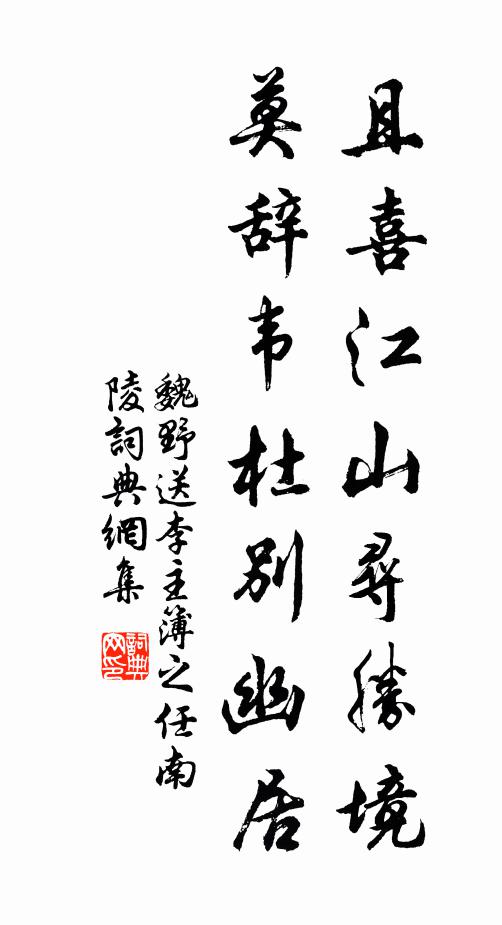 且喜江山尋勝境
莫辞韦杜別幽居
魏野送李主簿之任南
陵詞典網集
詞典
网印